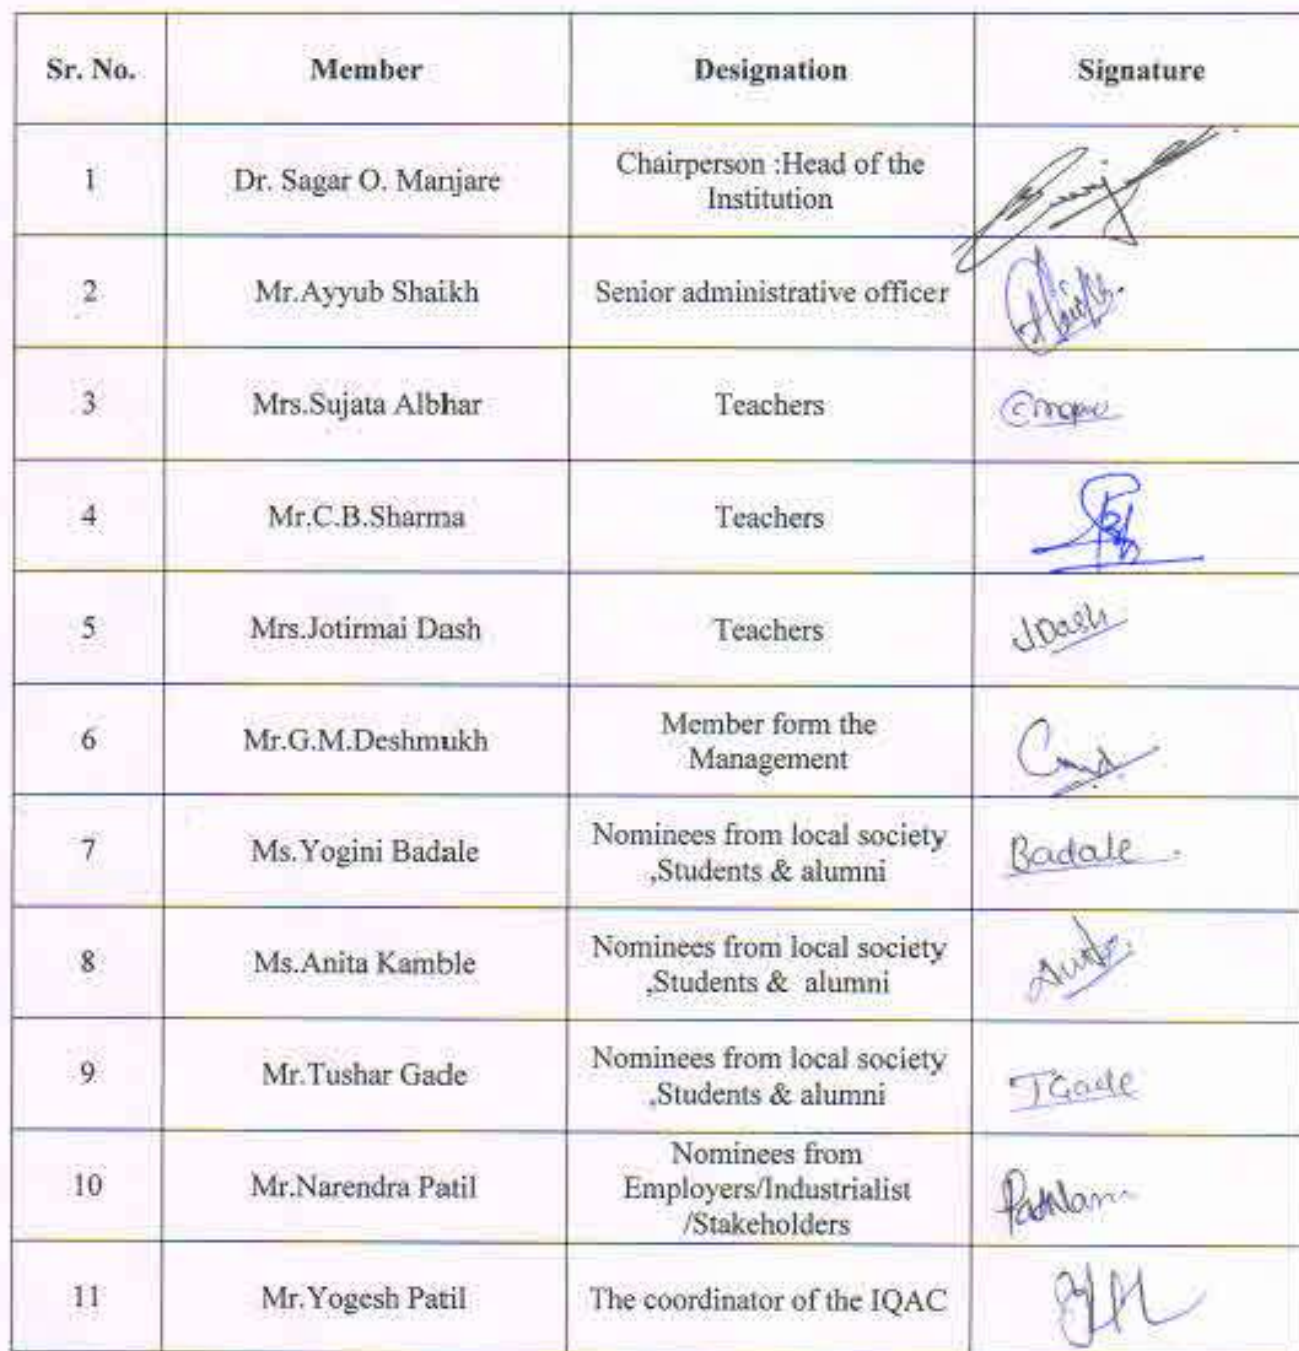 Sr. No. Member Designation Signature
1 Dr. Sagar O. Manjare Chairperson :Head of the
Institution
2 Mr.Ayyub Shaikh Senior administrative officer
3 Mrs.Sujata Albhar Teachers
4 Mr.C.B.Sharma Teachers
5 Mrs.Jotirmai Dash Teachers J.Dash
6 Mr.G.M.Deshmukh Member form the
Management
7 Ms.Yogini Badale Nominees from local society Badale
,Students & alumni
8 Ms.Anita Kamble Nominees from local society
,Students & alumni
9 Mr.Tushar Gade Nominees from local society TGade
,Students & alumni
10 Mr.Narendra Patil Nominees from
Employers/Industrialist
/Stakeholders
11 Mr.Yogesh Patil The coordinator of the IQAC